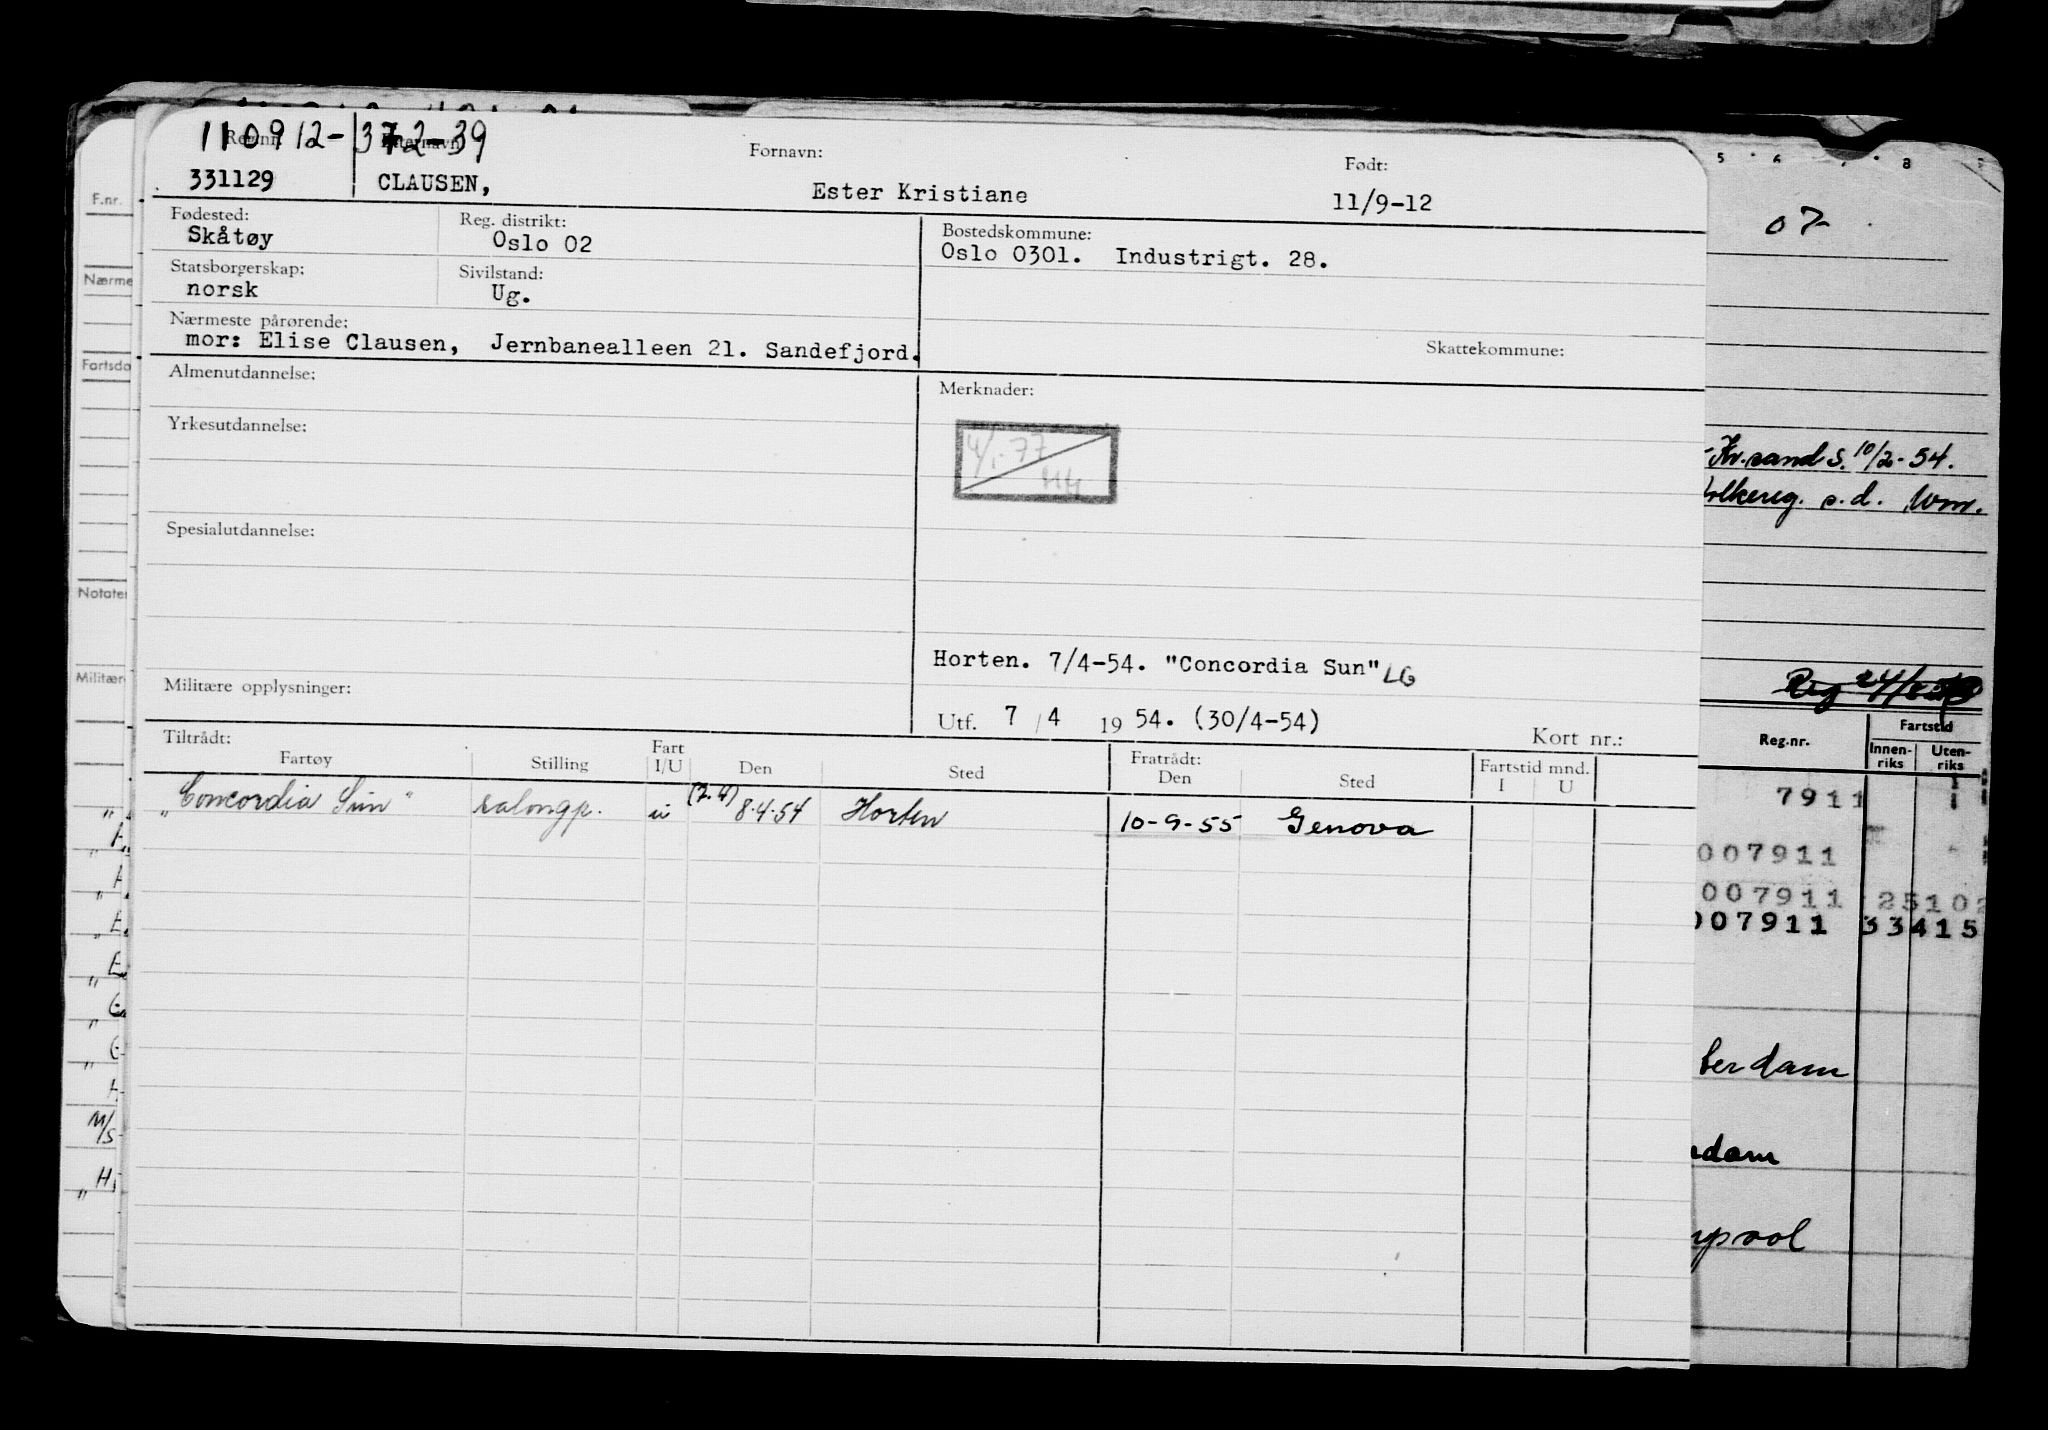 110912-372-39
Reg.nr. Etternavn: Fornavn: Født:
331129 CLAUSEN, Ester Kristiane 11/9-12
Fødested: Reg. distrikt: Bostedskommune:
Skåtøy Oslo 02 Oslo 0301. Industrigt. 28.
Statsborgerskap: Sivilstand:
norsk Ug.
Nærmeste pårørende: Skattekommune:
mor: Elise Clausen, Jernbanealleen 21. Sandefjord.
Almenutdannelse: Merknader:
Yrkesutdannelse:
4/1-77
HH
Spesialutdannelse:
Horten. 7/4-54. "Concordia Sun" LG
Militære opplysninger:
Utf. 7 / 4 19 54. (30/4-54) Kort nr.:
Tiltrådt: Fratrådt:
Fartøy Stilling Fart I/U Den Sted Den Sted Fartstid mnd. I U
"Concordia Sun" salongp. u (7.4) 8.4.54 Horten 10-9-55 Genova
F.nr.
Nærme
Fartsda
Notater
Militær
M/S
5 6 8
07
Kr.sand S. 10/2-54.
olkereg. s.d. Wm.
Reg 24/
Reg.nr. Fartstid
Innen-riks Uten-riks
7911
007911
007911 25102
007911 33415
terdam
dam
pool